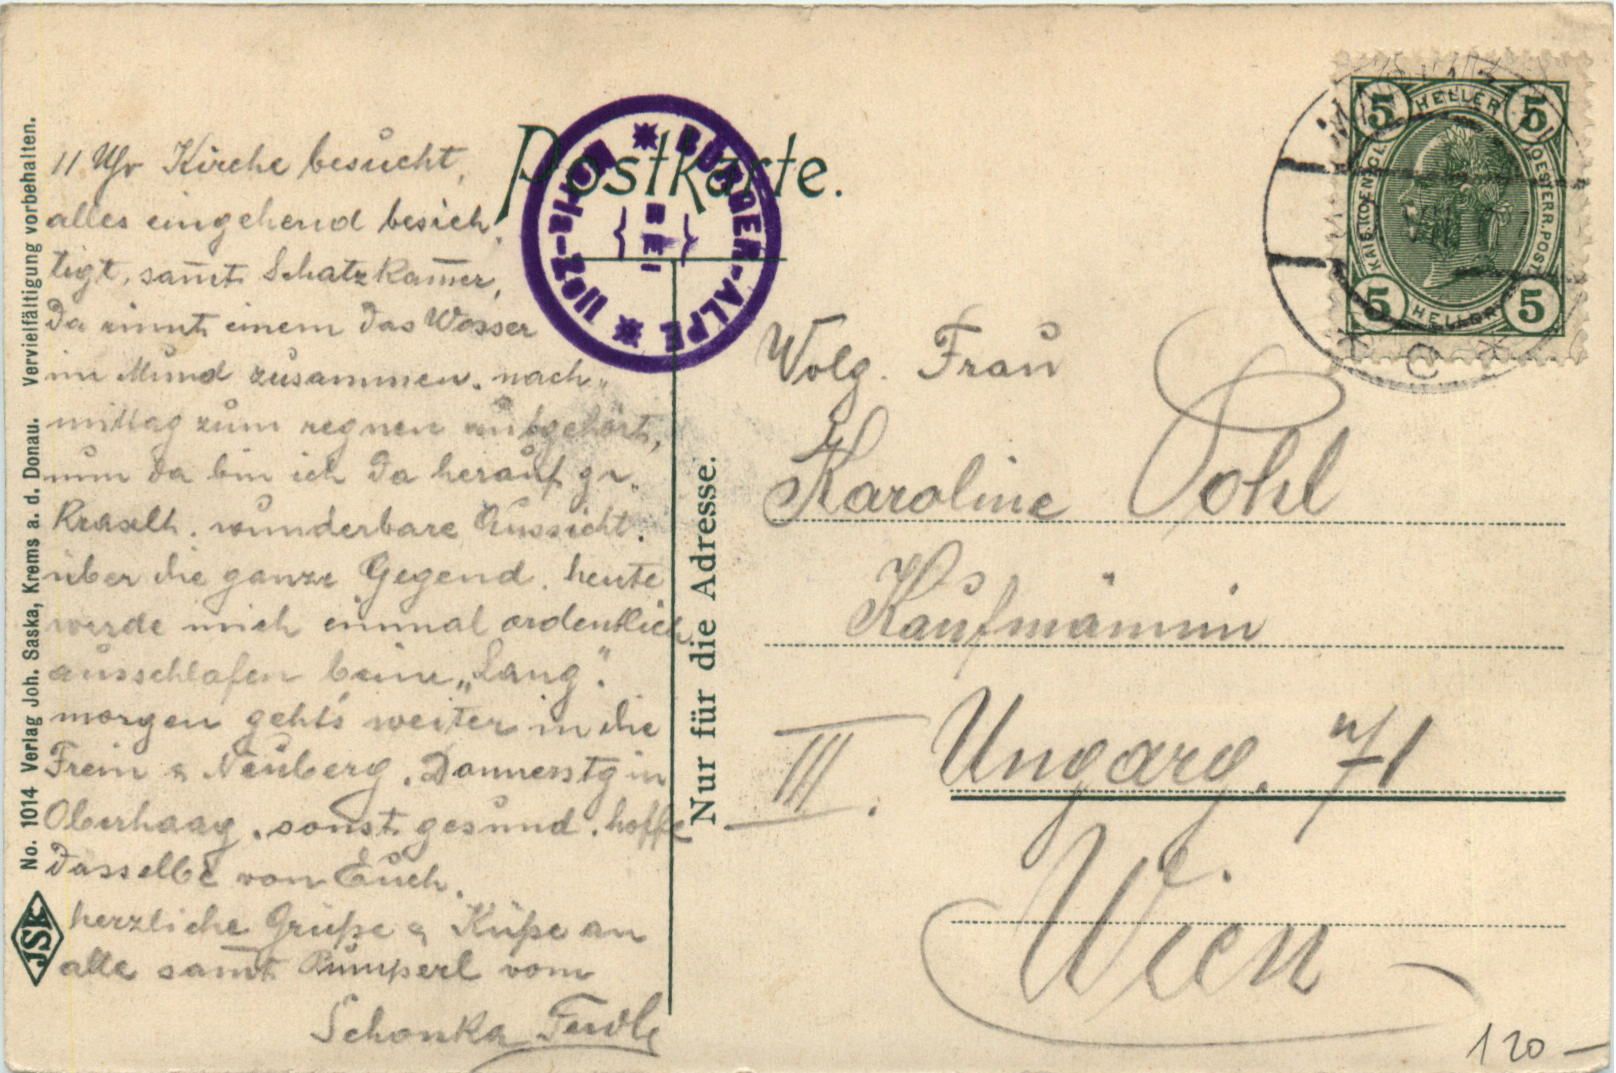 Postkarte.
BÜRGER-ALPE
BEI
Maria-Zell
5 HELLER 5
KAIS. KOENIGL. OESTERR. POST
5 HELLER 5
11 Uhr Kirche besucht,
alles eingehend besich,
tigt, sam̄t Schatzkam̄er,
da rinnt einem das Wasser
im Mund zusammen. nach„
mittag zum regnen aufgehört,
nun da bin ich da herauf ge„
kraxelt. wunderbare Aussicht.
über die ganze Gegend. heute
werde mich einmal ordentlich
ausschlafen beim „Lang".
morgen geht's weiter in die
Frein & Neuberg. Donnerstg in
Oberhaag. sonst gesund. hoffe
dasselbe von Euch.
herzliche Grüße & Küße an
alle sam̄t Pumperl vom
Schonka Ferdl
Wolg. Frau
Karoline Pohl
Kaufmännin
III. Ungarg. n/71
Wien
Nur für die Adresse.
No. 1014 Verlag Joh. Saska, Krems a. d. Donau. Vervielfältigung vorbehalten.
JSK
120 —